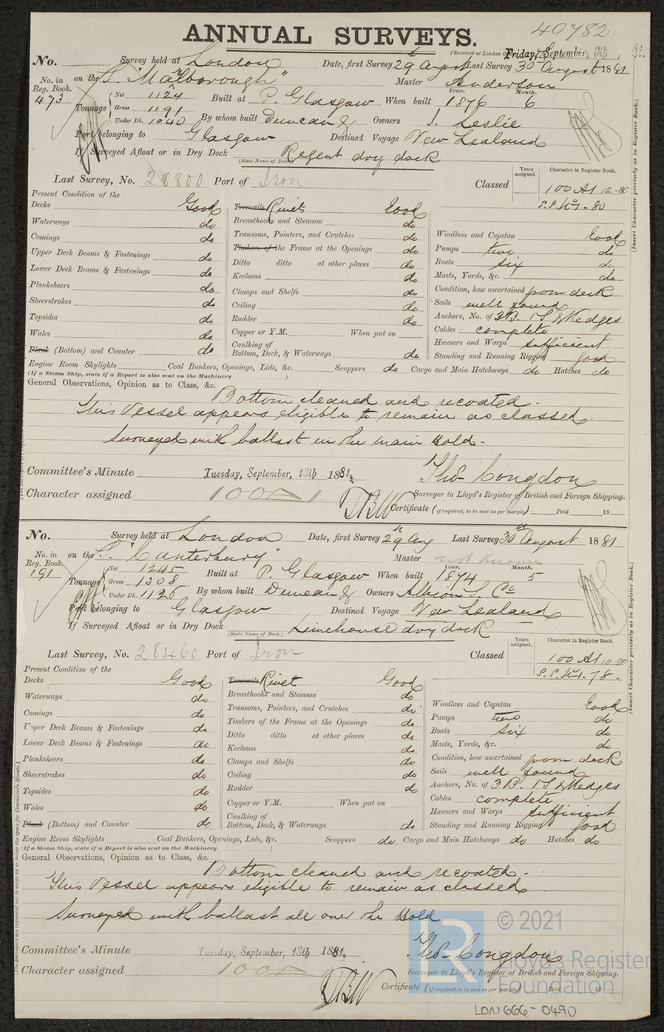 40782
ANNUAL SURVEYS.
(Received at London Friday, September, 9th
No. Survey held at London Date, first Survey 29th August Last Survey 30th August 1881
No. in Reg. Book. on the S. "Marlborough" Master Anderson
473 Tonnage Net 1124 Gross 1191 Under Dk. 1040 Built at P. Glasgow When built Year. 1876 Month. 6
By whom built Duncan & Owners J. Leslie
Port belonging to Glasgow Destined Voyage New Zealand
If Surveyed Afloat or in Dry Dock Regent dry dock
(State Name of Dock.)
Last Survey, No. 28800 Port of Iron Classed Years assigned. Character in Register Book.
100 A1 12-80
S.S. No 1-80
(Insert Character precisely as in Register Book.)
Present Condition of the
Decks Good Treenails Rivets Good
Waterways do Breasthooks and Stemson do Windlass and Capstan Good
Comings do Transoms, Pointers, and Crutches do Pumps two do
Upper Deck Beams & Fastenings do Timbers of the Frame at the Openings do Boats six do
Lower Deck Beams & Fastenings do Ditto ditto at other places do Masts, Yards, &c. do
Planksheers do Keelsons do Condition, how ascertained from deck
Sheerstrakes do Clamps and Shelfs do Sails well found
Topsides do Ceiling do Anchors, No. of 3B. 1S. 2 Kedges
Wales do Rudder do Cables complete
Plank (Bottom) and Counter do Copper or Y.M. When put on Hawsers and Warps sufficient
Caulking of Bottom, Deck, & Waterways do Standing and Running Rigging good
Engine Room Skylights Coal Bunkers, Openings, Lids, &c. Scuppers do Cargo and Main Hatchways do Hatches do
(If a Steam Ship, state if a Report is also sent on the Machinery
General Observations, Opinion as to Class, &c.
Bottom cleaned and recoated.
This Vessel appears eligible to remain as classed.
Surveyed with ballast in the main hold.
Committee's Minute Tuesday, September, 13th 1881. Thos. Congdon
Character assigned 100A1 Surveyor to Lloyd's Register of British and Foreign Shipping.
Certificate (if required, to be sent as per margin) Paid 18
No. Survey held at London Date, first Survey 29th Aug Last Survey 30th August 1881
No. in Reg. Book. on the S. "Canterbury" Master not known
191 Tonnage Net 1245 Gross 1308 Under Dk. 1126 Built at P. Glasgow When built Year. 1874 Month. 5
By whom built Duncan & Owners Albion S. Co
Port belonging to Glasgow Destined Voyage New Zealand
If Surveyed Afloat or in Dry Dock Limehouse dry dock
(State Name of Dock.)
Last Survey, No. 28460 Port of Iron Classed Years assigned. Character in Register Book.
100 A1 10-80
S.S. No 1-78.
(Insert Character precisely as in Register Book.)
Present Condition of the
Decks Good Treenails Rivet Good
Waterways do Breasthooks and Stemson do Windlass and Capstan Good
Comings do Transoms, Pointers, and Crutches do Pumps two do
Upper Deck Beams & Fastenings do Timbers of the Frame at the Openings do Boats six do
Lower Deck Beams & Fastenings do Ditto ditto at other places do Masts, Yards, &c. do
Planksheers do Keelsons do Condition, how ascertained from deck
Sheerstrakes do Clamps and Shelfs do Sails well found
Topsides do Ceiling do Anchors, No. of 3B. 1S. 2 Kedges
Wales do Rudder do Cables complete
Plank (Bottom) and Counter do Copper or Y.M. When put on Hawsers and Warps sufficient
Caulking of Bottom, Deck, & Waterways do Standing and Running Rigging good
Engine Room Skylights Coal Bunkers, Openings, Lids, &c. Scuppers do Cargo and Main Hatchways do Hatches do
(If a Steam Ship, state if a Report is also sent on the Machinery
General Observations, Opinion as to Class, &c.
Bottom cleaned and recoated.
This Vessel appears eligible to remain as classed
Surveyed with ballast all over the hold
© 2021
Lloyd's Register
Foundation
Committee's Minute Tuesday, September, 13th 1881. Thos. Congdon
Character assigned 100A Surveyor to Lloyd's Register of British and Foreign Shipping.
Certificate (if required, to be sent as per margin) 18
LON666-0490